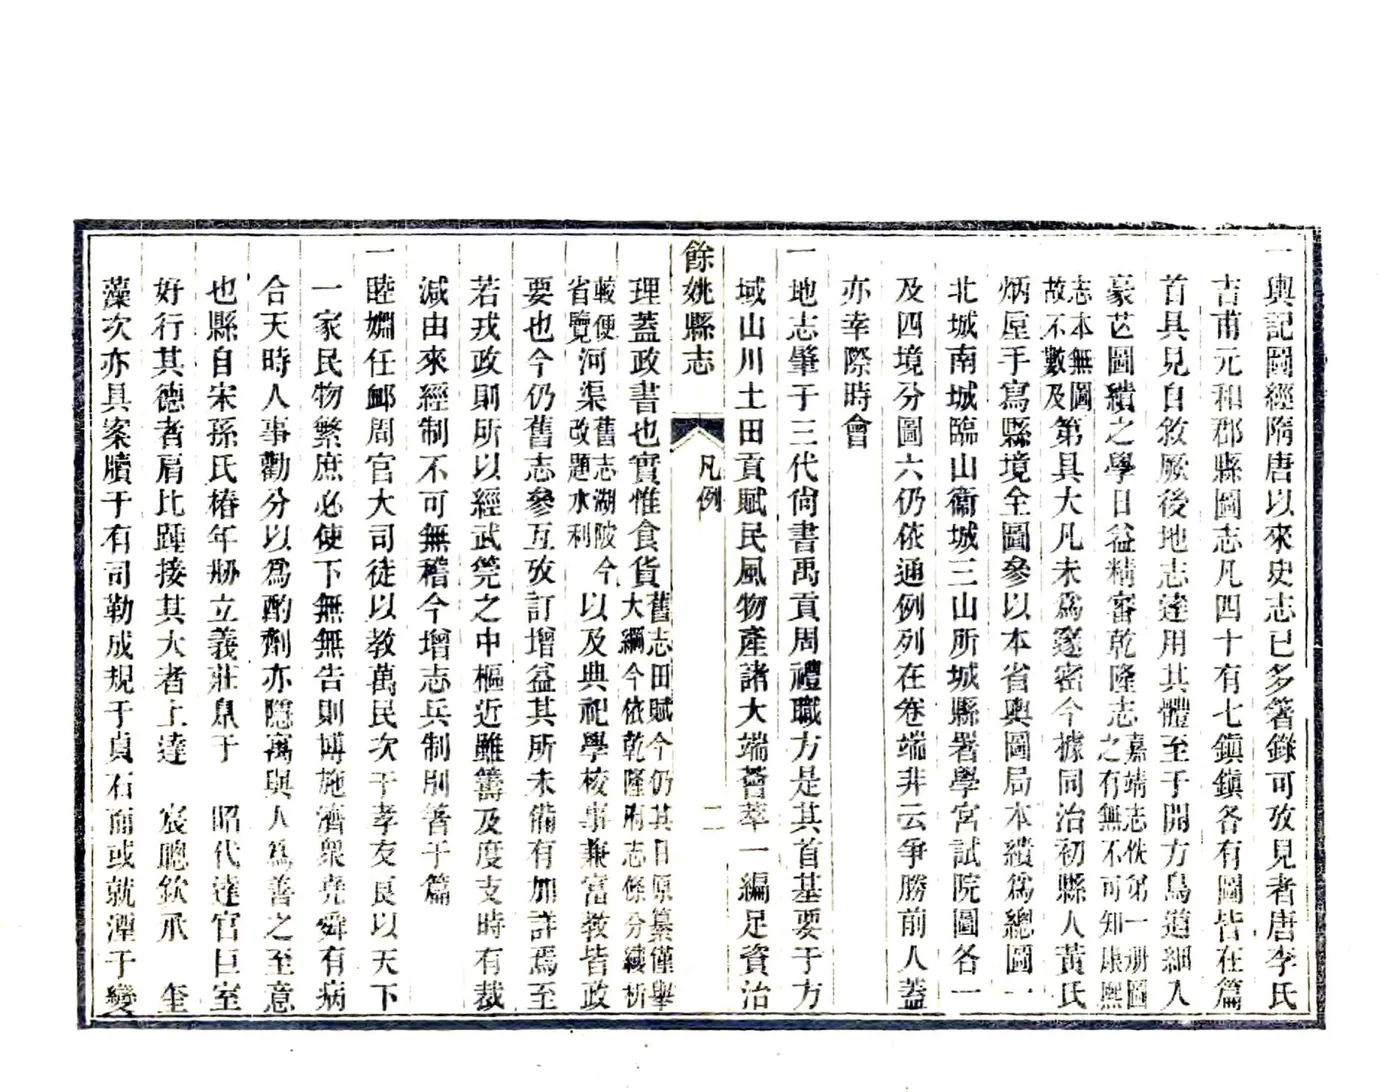 一輿記圖經隋唐以來史志已多箸錄可攷見者唐李氏
吉甫元和郡縣圖志凡四十有七鎮鎮各有圖皆在篇
首具見自敘厥後地志達用其體至于開方鳥道細入
豪芒圖繢之學日益精審乾隆志嘉靖志佚弟一册圖之有無不可知康熙
志本無圖故不數及第具大凡未爲邃密今據同治初縣人黃氏
炳垕手寫縣境全圖參以本省輿圖局本繢爲總圖一
北城南城臨山衞城三山所城縣署學宮試院圖各一
及四境分圖六仍依通例列在卷端非云爭勝前人蓋
亦幸際時會
一地志肇于三代尙書禹貢周禮職方是其首基要于方
域山川土田貢賦民風物產諸大端薈萃一編足資治
餘姚縣志
凡例
二
理蓋政書也實惟食貨舊志田賦今仍其目原纂僅舉大綱今依乾隆府志條分縷析
較便省覽河渠舊志湖陂今改題水利以及典祀學校事兼富敎皆政
要也今仍舊志參互攷訂增益其所未備有加詳焉至
若戎政則所以經武筦之中樞近雖籌及度支時有裁
減由來經制不可無稽今增志兵制別箸于篇
一睦婣任卹周官大司徒以敎萬民次于孝友良以天下
一家民物繁庶必使下無無告則博施濟衆堯舜有病
合天時人事勸分以爲酌劑亦隱寓與人爲善之至意
也縣自宋孫氏椿年刱立義莊臮于　昭代達官巨室
好行其德者肩比踵接其大者上達　宸聰欽承　奎
藻次亦具案牘于有司勒成規于貞石而或就湮于變